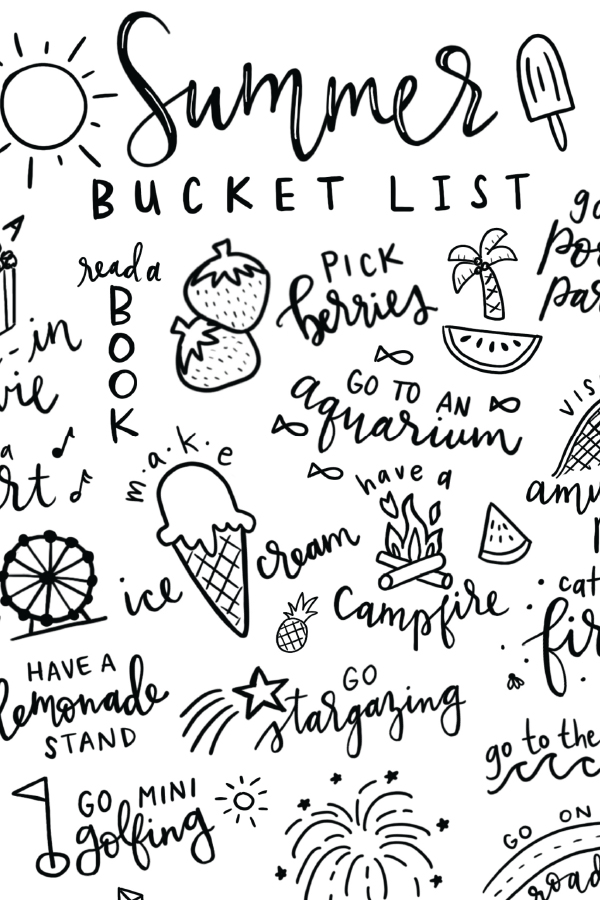 Summer
BUCKET LIST
A
read a
BOOK
PICK
berries
go
in
GO TO AN
aquarium
a
make
ice cream
have a
campfire
HAVE A
lemonade
STAND
GO
stargazing
go to the
GO MINI
golfing
GO ON
road